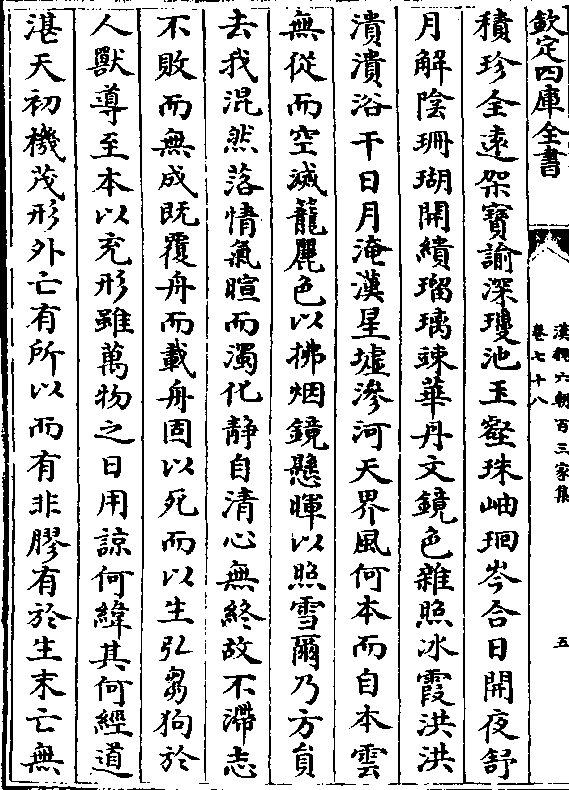 欽定四庫全書
漢魏六朝百三家集
卷七十八
五
積珍全遠架寶諭深瓊池玉壑珠岫珛岑合日開夜舒
月解陰珊瑚開繢瑠璃竦華丹文鏡色雜照冰霞洪洪
潰潰浴干日月淹漢星墟滲河天界風何本而自本雲
無從而空滅籠麗色以拂烟鏡懸暉以照雪爾乃方負
去我混然落情氣暄而濁化静自清心無終故不滯志
不敗而無成既覆舟而載舟固以死而以生弘芻狗於
人獸導至本以充形雖萬物之日用諒何緯其何經道
湛天初機茂形外亡有所以而有非膠有於生末亡無